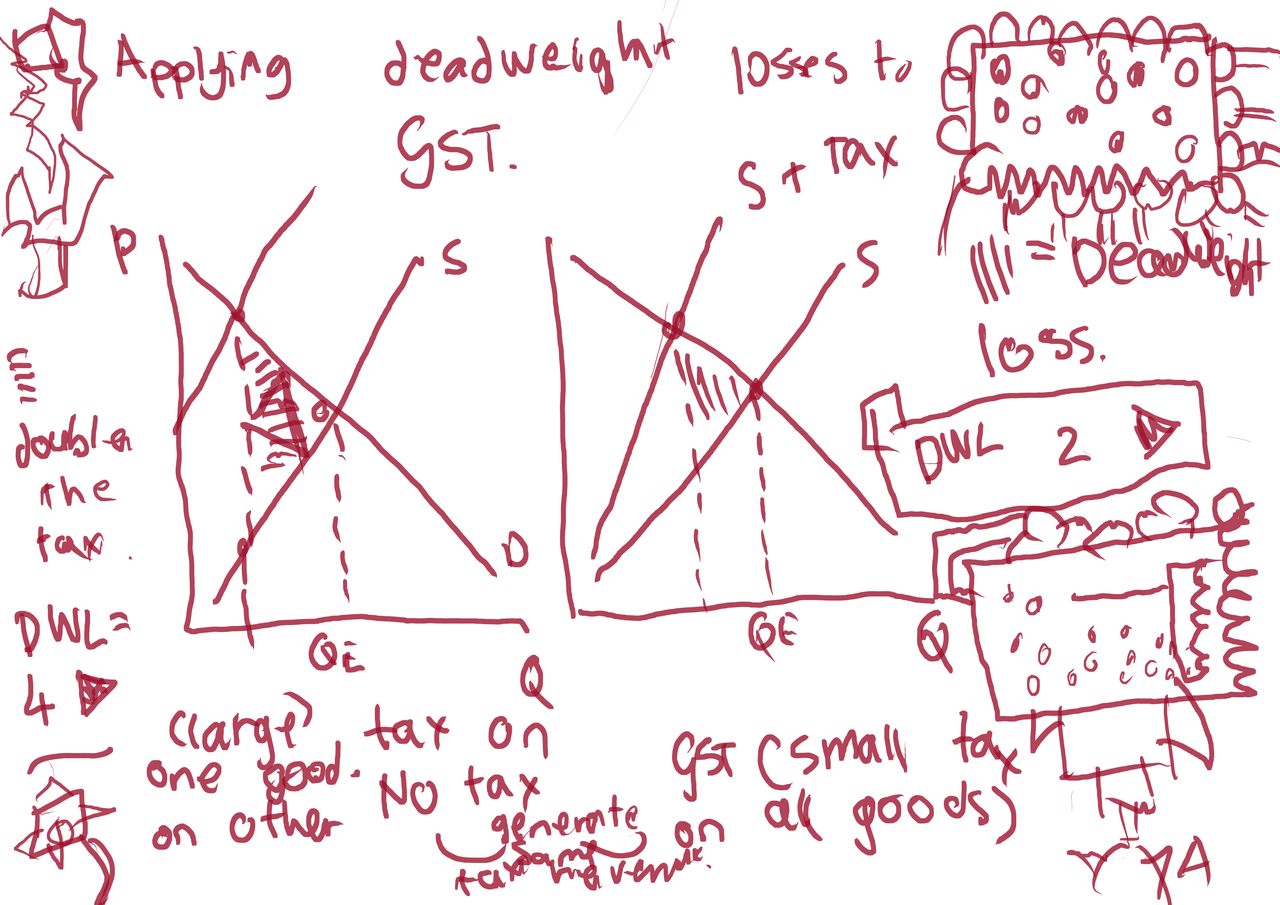 Applying deadweight losses to
GST.
S + Tax
P
S
S
= Deadweight
loss.
double
the
tax.
DWL 2
D
DWL =
4
QE
Q
QE
Q
(large) tax on
one good. No tax
on other
generate
same
tax revenue.
GST (small tax
on all goods)
A